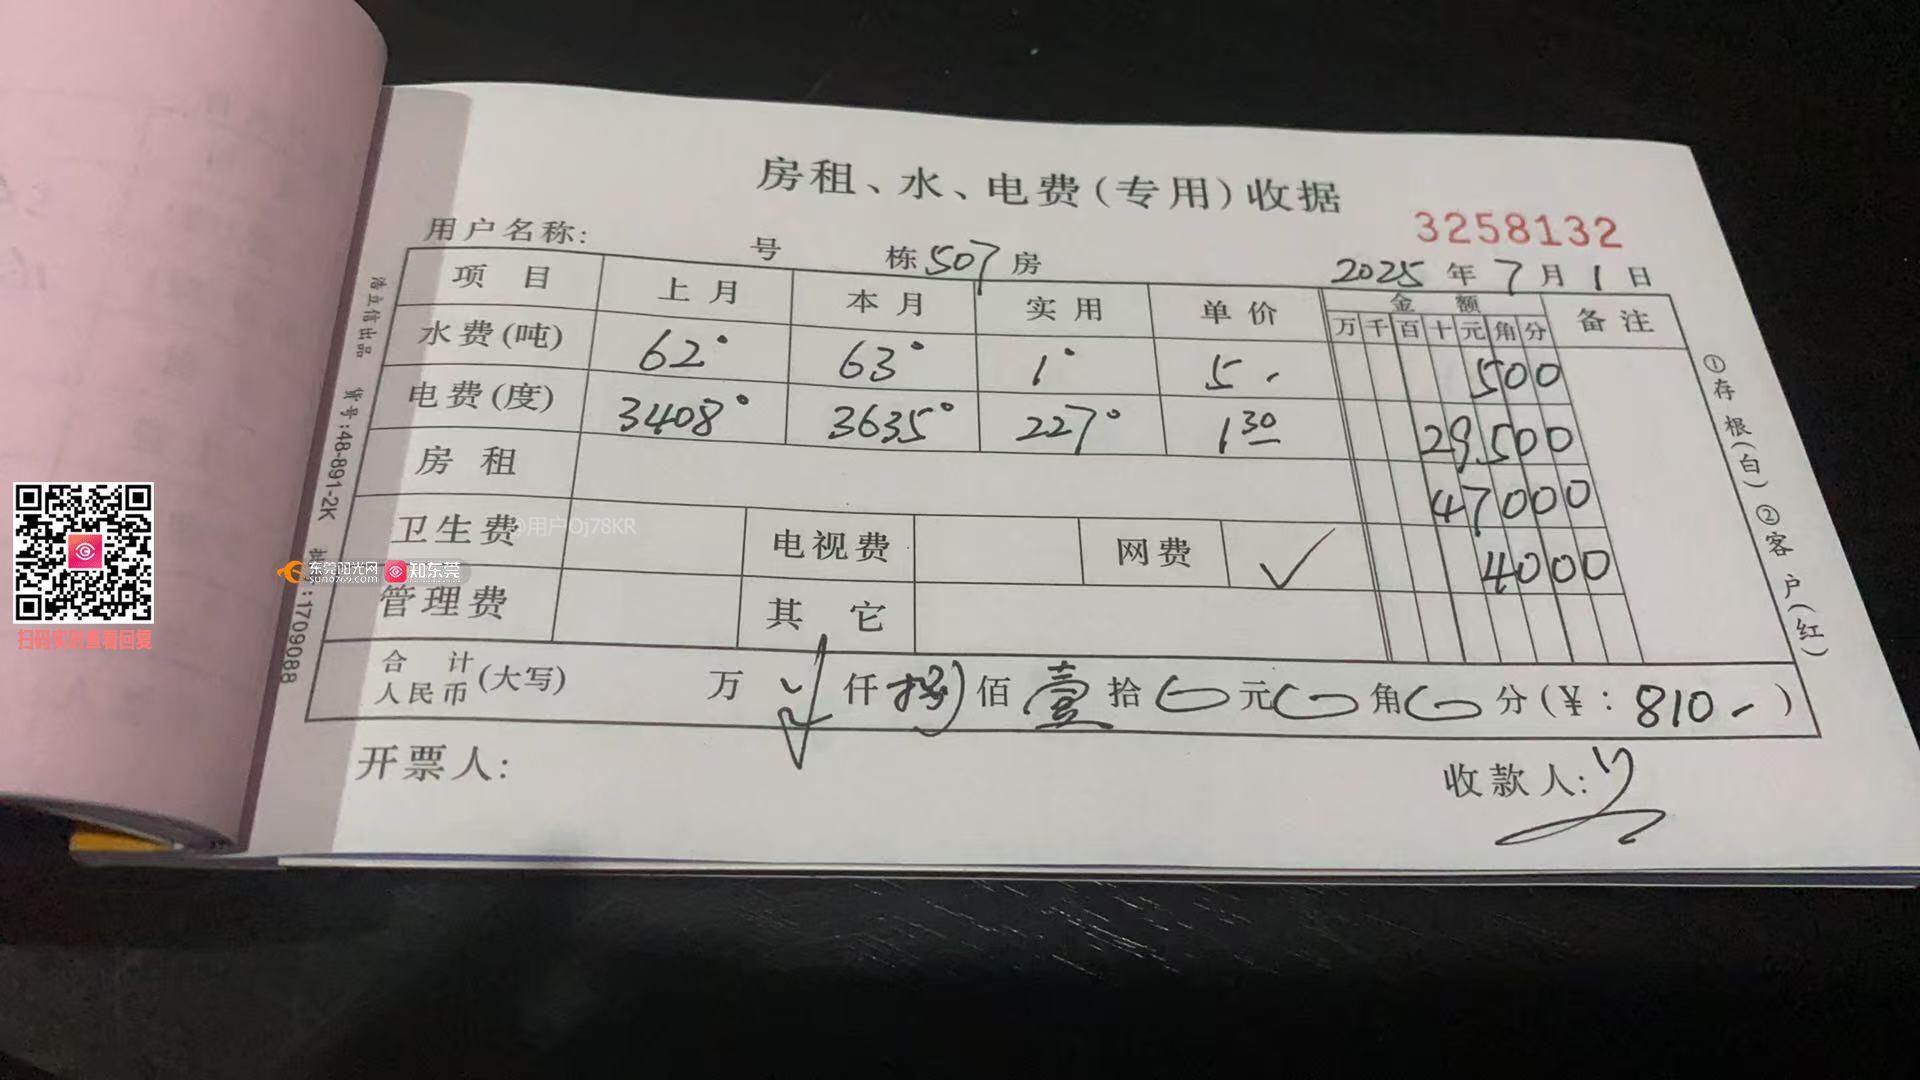 房租、水、电费(专用)收据
3258132
用户名称: 号 栋507房
2025年7月1日
项目 上月 本月 实用 单价 金额 备注
万千百十元角分
水费(吨) 62° 63° 1° 5. 500
电费(度) 3408° 3635° 227° 1.30 29500
房租 47000
卫生费 电视费 网费 ✓ 4000
管理费 其它
合计人民币(大写) 万 仟捌佰壹拾0元0角0分(¥:810-)
开票人:
收款人:
①存根(白)②客户(红)
浩立信出品 货号:48-891-2K
:1709088
@用户Oj78KR
东莞阳光网
sun0769.com
知东莞
扫码实时查看回复